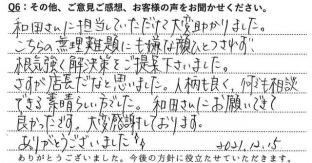 Q6：その他、ご意見ご感想、お客様の声をお聞かせください。
和田さんに担当していただけて大変助かりました。
こちらの無理難題にも嫌な顔ひとつせず、
根気強く解決策をご提案下さいました。
さすが店長だなと思いました。人柄も良く、何でも相談
できる素晴らしい方でした。和田さんにお願いできて
良かったです。大変感謝しております。
ありがとうございました
2021.12.15
ありがとうございました。今後の方針に役立たせていただきます。